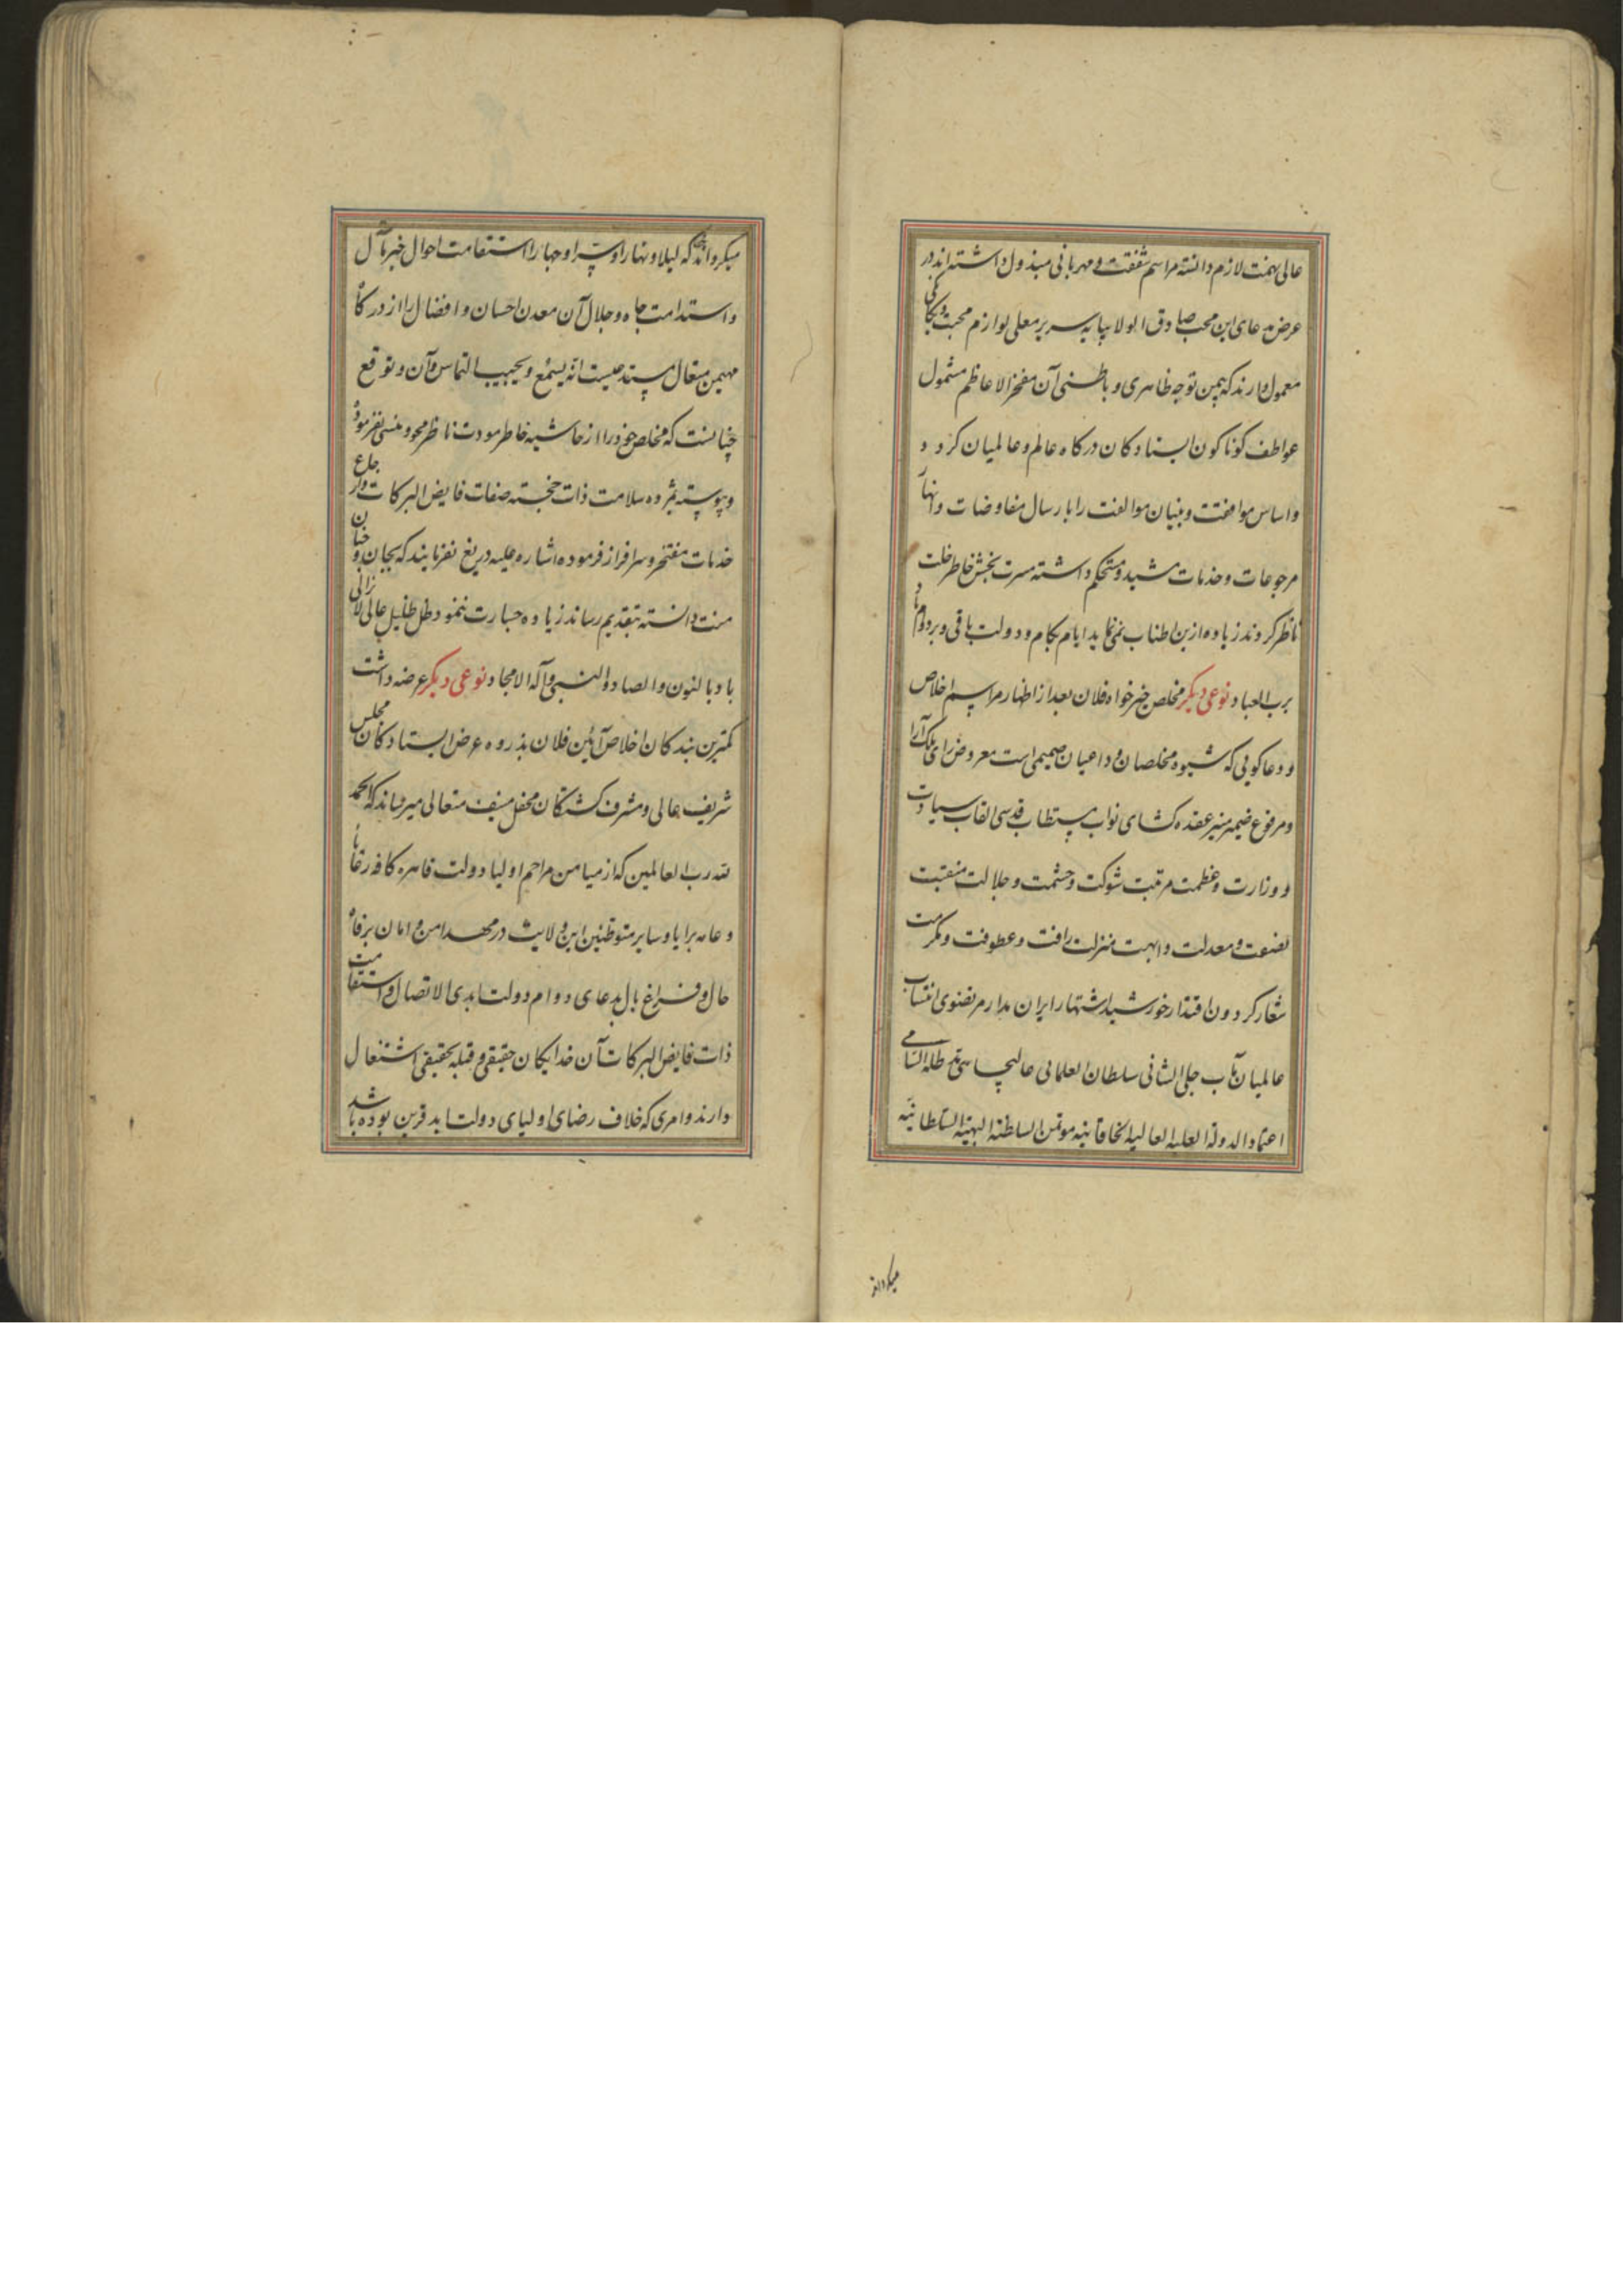 عالی همت لازم دانسته مراسم شفقت و مهربانی مبذول داشته اند در
عرض مدعای این محب صادق الولا بپایه سریر معلی لوازم محبت و یکانکی
معمول دارند که بیمن توجه ظاهری و باطنی آن مفخر الاعاظم مشمول
عواطف کوناکون ایستادکان درکاه عالم و عالمیان کردد
و اساس موافقت و بنیان موالفت را بارسال مفاوضات و انهاء
مرجوعات و خدمات مشید و مستحکم داشته مسرت بخش خاطر خلت
ناظر کردند زیاده ازین اطناب نمی نماید ایام بکام و دولت باقی و بردوام باد
برب العباد نوعی دیکر مخلص خیرخواه فلان بعد از اظهار مراسم اخلاص
و دعاکویی که شیوه مخلصان و داعیان صمیمی است معروض رای ملک آرا
و مرفوع ضمیر منیر عقده کشای نواب مستطاب قدسی القاب سیادت
و وزارت و عظمت مرتبت شوکت و حشمت و جلالت منقبت
نصفت و معدلت و ابهت منزلت رافت و عطوفت و مکرمت
شعار کردون اقتدار خورشید اشتهار ایران مدار مرتضوی انتساب
عالمیان مآب جلی الشانی سلطان العلمائی عالیجاهی مد ظله السامی
اعتماد الدولة العلیه العالیه الخاقانیه موتمن السلطنة البهیة السلطانیه
میکرداند
میکرداند که لیلا و نهارا و سرا و جهارا استقامت احوال خیر مآل
و استدامت جاه و جلال آن معدن احسان و افضال را از درکاه
مهیمن متعال مستدعیست انه یسمع و یجیب التماس و آن و توقع
چنانست که مخلص خود را از حاشیه خاطر مودت ناظر محو و منسی نفرموده
و پیوسته بمژده سلامت ذات خجسته صفات فایض البرکات و ارجاع
خدمات مفتخر و سرافراز فرموده اشاره علیه دریغ نفرمایند که بجان و جنان
منت دانسته بتقدیم رساند زیاده جسارت ننمود ظل ظلیل عالی لایزالی
باد بالنون و الصاد و النبی و آله الامجاد نوعی دیکر عرضه داشت
کمترین بندکان اخلاص آیین فلان بذروه عرض ایستادکان مجلس
شریف عالی و مشرف کشتکان محفل منیف متعالی میرساند که الحمد
لله رب العالمین که از میامن مراحم اولیاء دولت قاهره کافه رعایا
و عامه برایا و سایر متوطنین این ولایت در مهد امن و امان برفاه
حال و فراغ بال بدعای دوام دولت ابدی الاتصال و استقامت
ذات فایض البرکات آن خدایکان حقیقی و قبله تحقیقی اشتغال
دارند و امری که خلاف رضای اولیای دولت ابد قرین بوده باشد